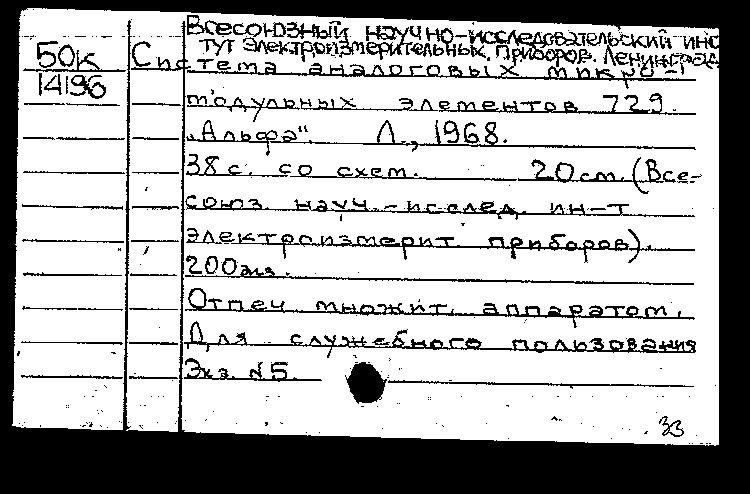 Всесоюзный научно-исследовательский инс
тут электроизмерительных приборов. Ленинград
50к
14196
Система аналоговых микро-
модульных элементов 729.
„Альфа". Л., 1968.
38 с. со схем. 20 см. (Все-
союз. науч.-исслед. ин-т
электроизмерит. приборов).
200 экз.
Отпеч. множит. аппаратом.
Для служебного пользования
Экз. №5.
33